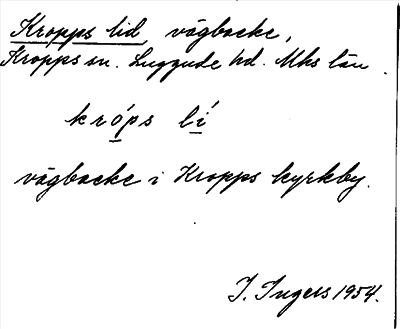 Kropps lid, vägbacke,
Kropps sn. Luggude hd. Mhs län.
króps lí
vägbacke i Kropps kyrkby.
I. Ingers 1954.